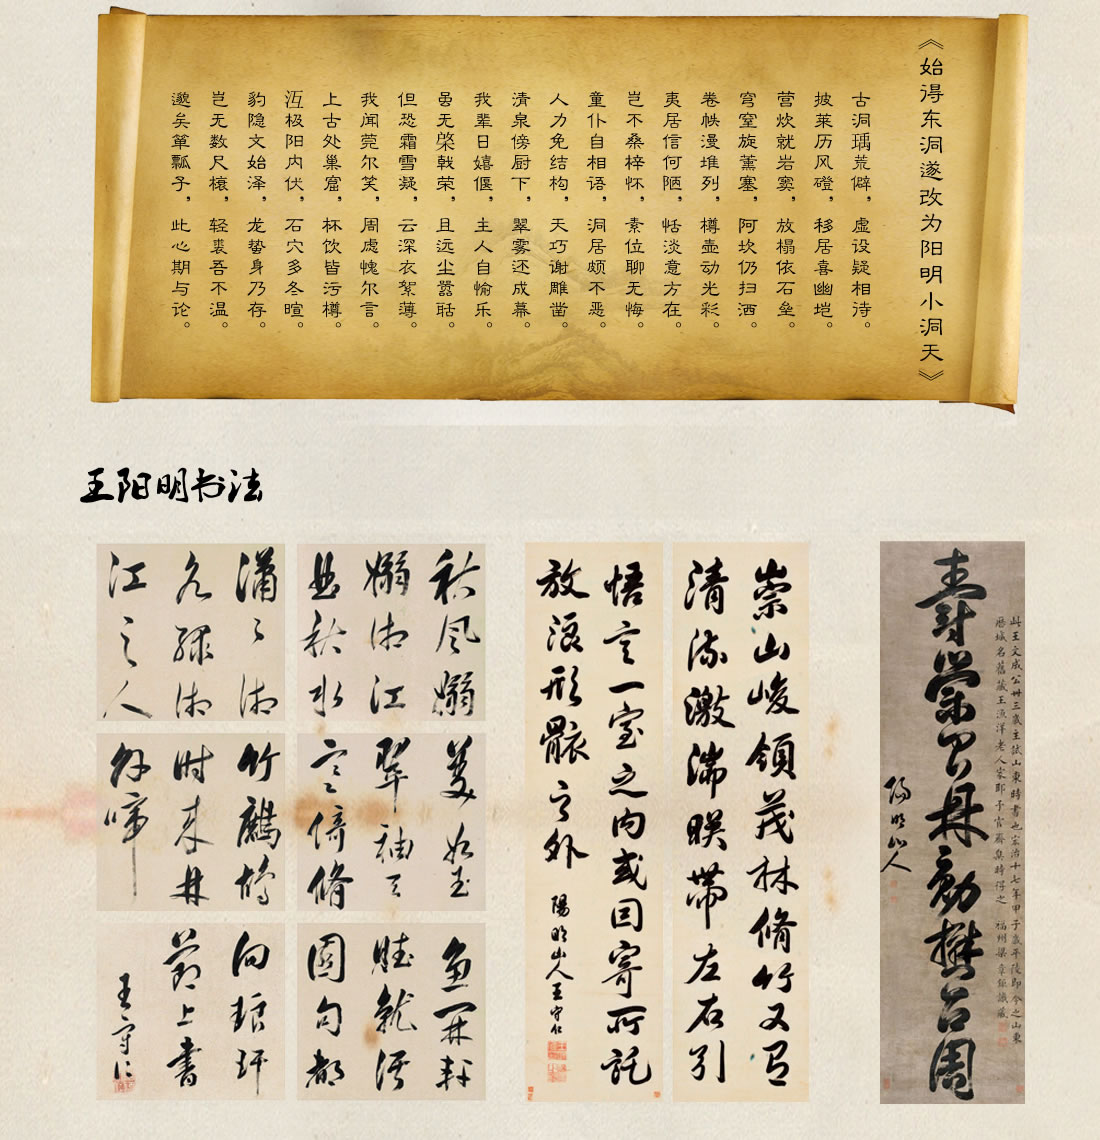 《始得东洞遂改为阳明小洞天》
古洞瑀荒僻，虚设疑相待。
披莱历风磴，移居喜幽垲。
营炊就岩窦，放榻依石垒。
穹窒旋薰塞，阿坎仍扫洒。
卷帙漫堆列，樽壶动光彩。
夷居信何陋，恬淡意方在。
岂不桑梓怀，素位聊无悔。
童仆自相语，洞居颇不恶。
人力免结构，天巧谢雕凿。
清泉傍厨下，翠雾还成幕。
我辈日嬉偃，主人自愉乐。
虽无棨戟荣，且远尘嚣聒。
但恐霜雪疑，云深衣絮薄。
我闻莞尔笑，周虑愧尔言。
上古处巢窟，杯饮皆污樽。
沍极阳内伏，石穴多冬暄。
豹隐文始泽，龙蛰身乃存。
岂无数尺榱，轻裘吾不温。
邈矣箪瓢子，此心期与论。
王阳明书法
秋风嫋
嫋湘江
秋水
如玉
翠袖天
寒倚脩
江之人
竹鷓鴣
啼
王守仁
崇山峻領茂林脩竹又有
清流激湍暎帶左右引
悟言一室之内或因寄所託
放浪形骸之外
陽明山人王守仁
此王文成公卅三歲主試山東時書也宏治十七年甲子歲平陵即今之山東
陽明山人